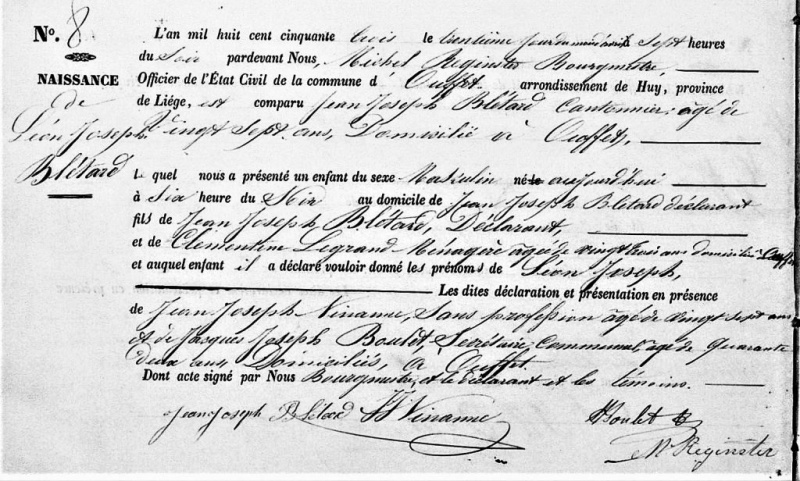 No. 8
NAISSANCE
de
Léon Joseph
Blétard
L'an mil huit cent cinquante trois le trentième jour du mois à sept heures
du Soir pardevant Nous, Michel Reginster Bourgmestre,
Officier de l'État Civil de la commune d' Ouffet, arrondissement de Huy, province
de Liége, est comparu Jean Joseph Blétard Cantonnier, agé de
vingt sept ans, Domicilié à Ouffet,
Le quel nous a présenté un enfant du sexe Masculin né le aujourd'hui
à Six heure du Soir au domicile de Jean Joseph Blétard déclarant
fils de Jean Joseph Blétard, Déclarant,
et de Clémentine Legrand Ménagère agée de vingt trois ans domiciliée Ouffet
et auquel enfant il a déclaré vouloir donné les prénoms de Léon Joseph,
Les dites déclaration et présentation en présence
de Jean Joseph Viname, Sans profession agé de vingt sept ans
et de Jacques Joseph Boulet Secrétaire Communal, agé de quarante
deux ans, Domiciliés, à Ouffet.
Dont acte signé par Nous Bourgmestre, et le déclarant et les témoins.
Jean Joseph Blétard JJ Viname Boulet
M Reginster